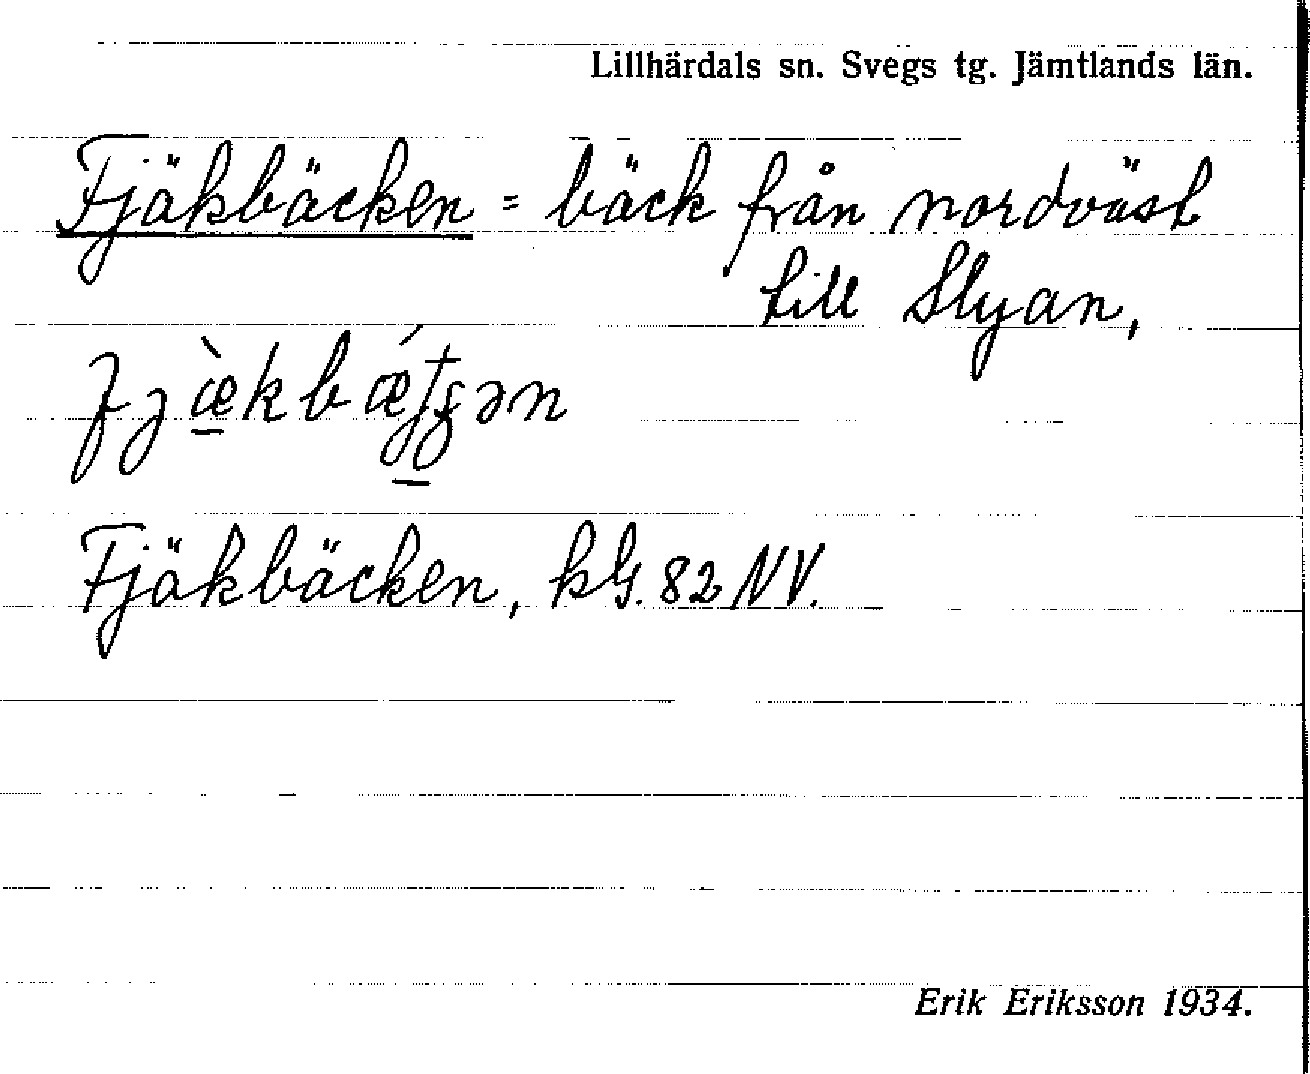 Lillhärdals sn. Svegs tg. Jämtlands län.
Fjäkbäcken = bäck från nordväst
till Slyan,
Fjäkbäcken, kbl. 82 NV.
Erik Eriksson 1934.